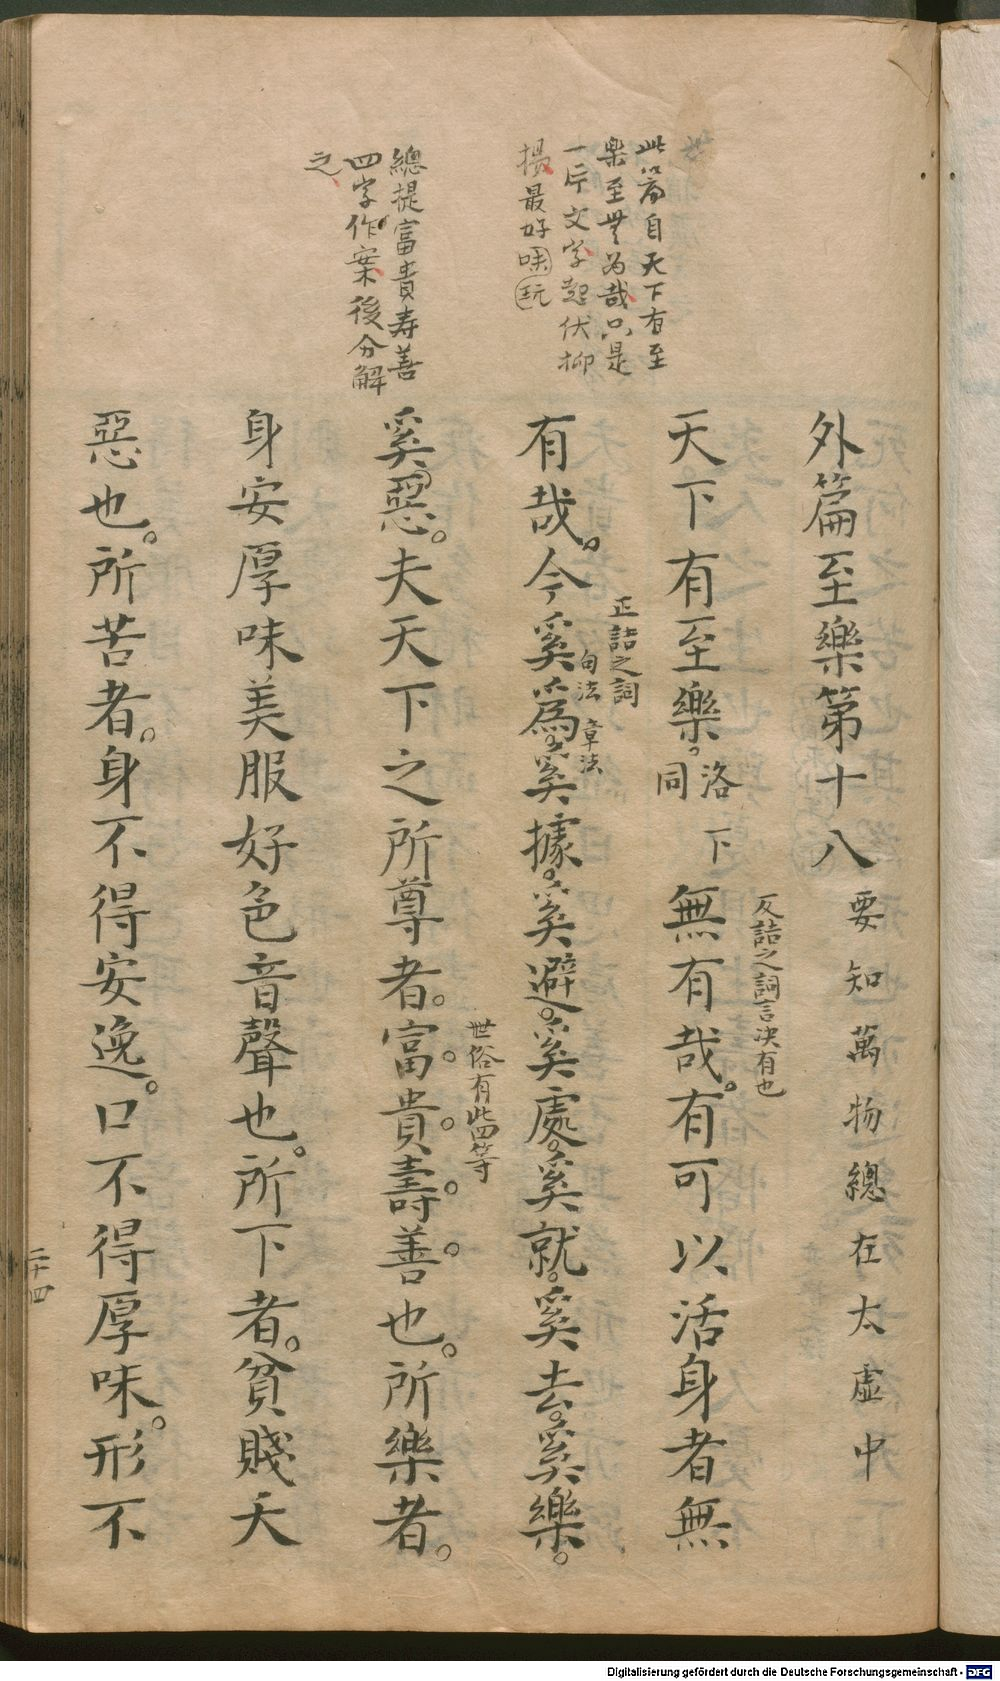 此篇自天下有至
樂至無为哉只是
一片文字起伏抑
揚最好味玩
總提富貴寿善
四字作案後分解
之
外篇至樂第十八 要知萬物總在太虛中
天下有至樂。洛下同 無有哉。有可以活身者無
反詰之詞言决有也
有哉。今奚爲。奚據。奚避。奚處。奚就。奚去。奚樂。
正詰之詞
句法 章法
奚惡。夫天下之所尊者。富。貴。壽。善。也。所樂者。
世俗有此四等
身安厚味美服好色音聲也。所下者。貧賤夭
惡也。所苦者。身不得安逸。口不得厚味。形不
二十四
Digitalisierung gefördert durch die Deutsche Forschungsgemeinschaft - DFG